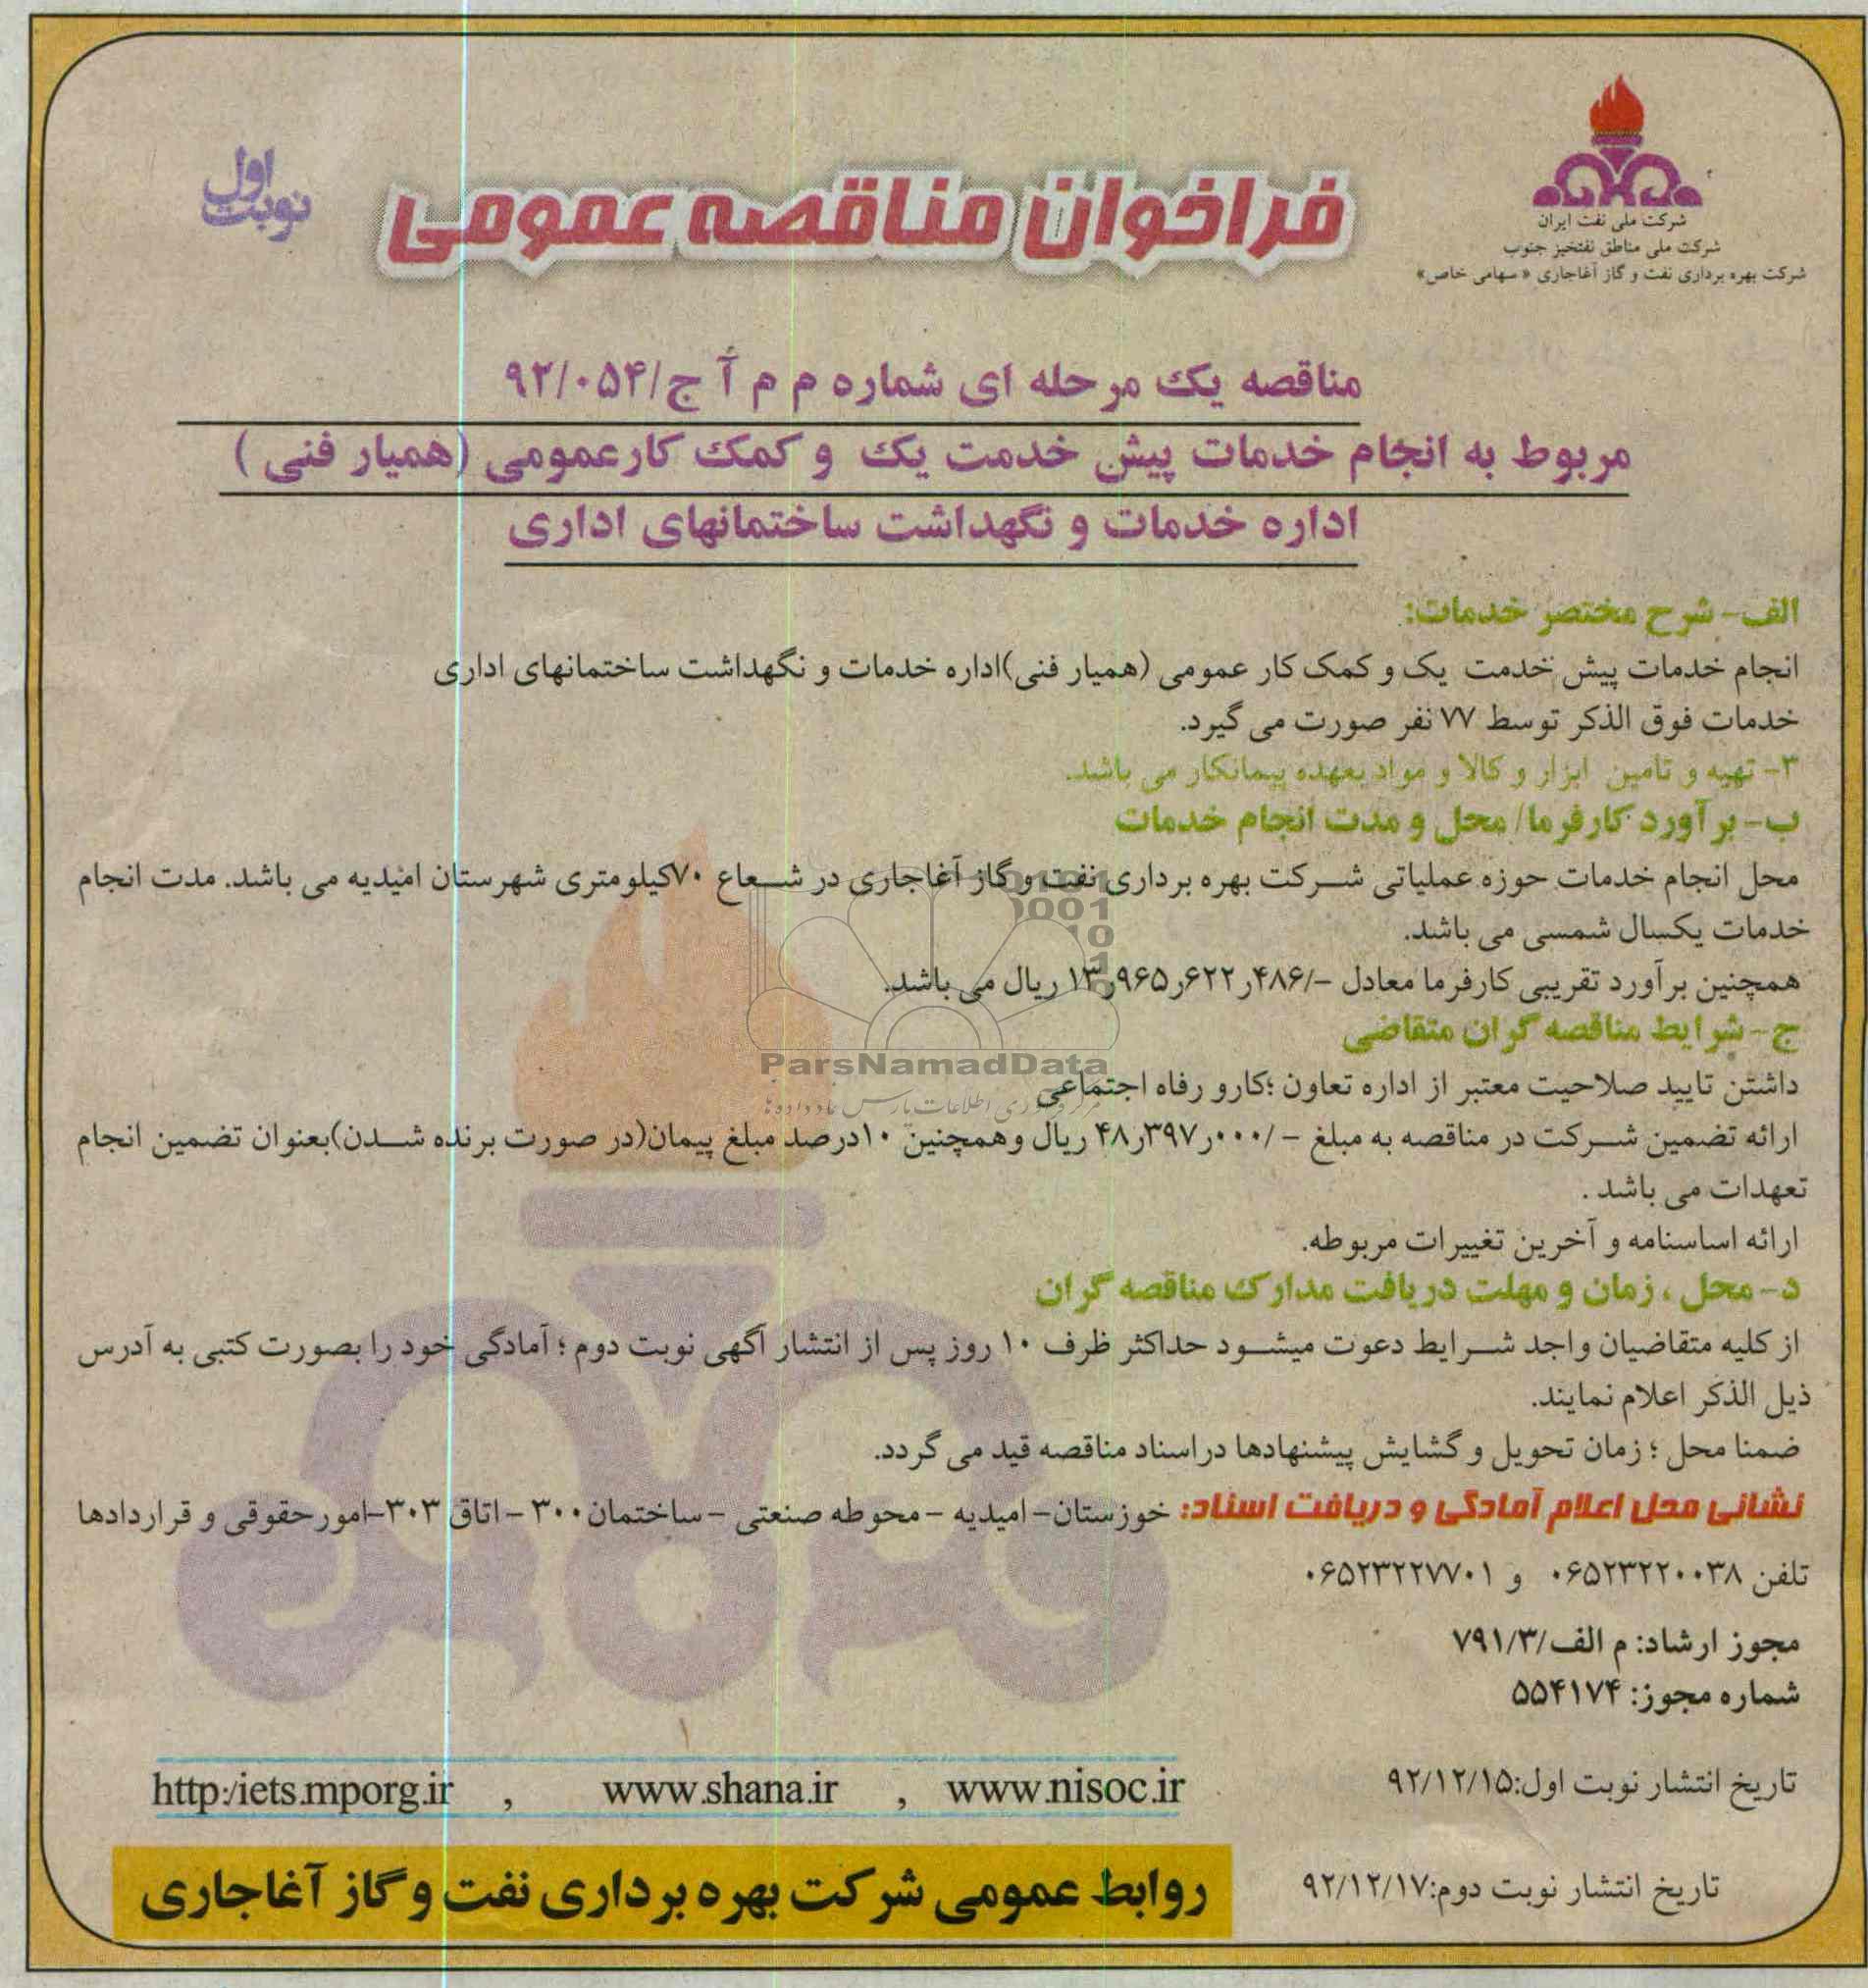 شرکت ملی نفت ایران
شرکت ملی مناطق نفتخیز جنوب
شرکت بهره برداری نفت و گاز آغاجاری « سهامی خاص»
فراخوان مناقصه عمومی
نوبت اول
مناقصه یک مرحله ای شماره م م آ ج/۹۲/۰۵۴
مربوط به انجام خدمات پیش خدمت یک و کمک کارعمومی (همیار فنی )
اداره خدمات و نگهداشت ساختمانهای اداری
الف- شرح مختصر خدمات:
انجام خدمات پیش خدمت یک و کمک کار عمومی (همیار فنی)اداره خدمات و نگهداشت ساختمانهای اداری
خدمات فوق الذکر توسط ۷۷ نفر صورت می گیرد.
۳- تهیه و تامین ابزار و کالا و مواد بعهده پیمانکار می باشد.
ب- برآورد کارفرما/ محل و مدت انجام خدمات
محل انجام خدمات حوزه عملیاتی شرکت بهره برداری نفت و گاز آغاجاری در شعاع ۷۰کیلومتری شهرستان امیدیه می باشد. مدت انجام
خدمات یکسال شمسی می باشد.
همچنین برآورد تقریبی کارفرما معادل -/۱۳ر۹۶۵ر۶۲۲ر۴۸۶ ریال می باشد.
ج- شرایط مناقصه گران متقاضی
داشتن تایید صلاحیت معتبر از اداره تعاون ؛کارو رفاه اجتماعی
ارائه تضمین شرکت در مناقصه به مبلغ -/۴۸ر۳۹۷ر۰۰۰ ریال وهمچنین ۱۰درصد مبلغ پیمان(در صورت برنده شدن)بعنوان تضمین انجام
تعهدات می باشد .
ارائه اساسنامه و آخرین تغییرات مربوطه.
د- محل ، زمان و مهلت دریافت مدارک مناقصه گران
از کلیه متقاضیان واجد شرایط دعوت میشود حداکثر ظرف ۱۰ روز پس از انتشار آگهی نوبت دوم ؛ آمادگی خود را بصورت کتبی به آدرس
ذیل الذکر اعلام نمایند.
ضمنا محل ؛ زمان تحویل و گشایش پیشنهادها دراسناد مناقصه قید می گردد.
نشانی محل اعلام آمادگی و دریافت اسناد: خوزستان- امیدیه -محوطه صنعتی -ساختمان۳۰۰ -اتاق ۳۰۳-امورحقوقی و قراردادها
تلفن ۰۶۵۲۳۲۲۰۰۳۸ و ۰۶۵۲۳۲۲۷۷۰۱
مجوز ارشاد: م الف/۷۹۱/۳
شماره مجوز: ۵۵۴۱۷۴
تاریخ انتشار نوبت اول:۹۲/۱۲/۱۵
www.nisoc.ir , www.shana.ir , http:/iets.mporg.ir
تاریخ انتشار نوبت دوم:۹۲/۱۲/۱۷
روابط عمومی شرکت بهره برداری نفت و گاز آغاجاری
ParsNamadData